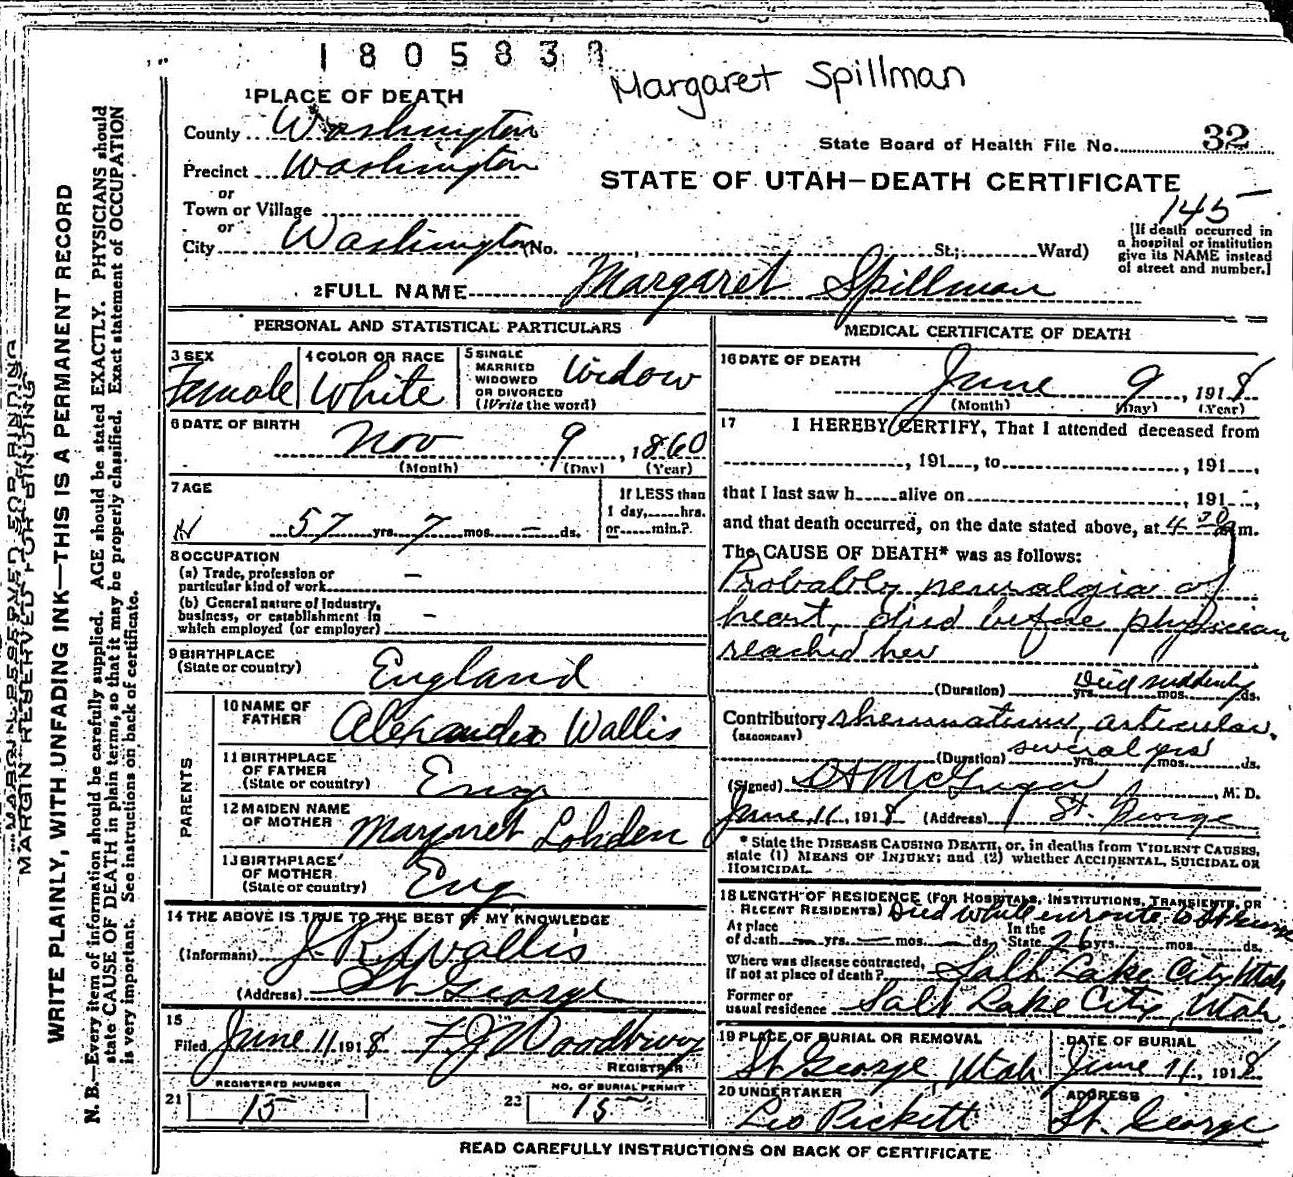 1805839
Margaret Spillman
1 PLACE OF DEATH
County Washington
State Board of Health File No. 32
Precinct Washington
STATE OF UTAH—DEATH CERTIFICATE
or
Town or Village
145
or
City Washington (No. , St.; Ward)
[If death occurred in a hospital or institution give its NAME instead of street and number.]
2 FULL NAME Margaret Spillman
PERSONAL AND STATISTICAL PARTICULARS
3 SEX Female
4 COLOR OR RACE White
5 SINGLE MARRIED WIDOWED OR DIVORCED (Write the word) Widow
6 DATE OF BIRTH
Nov 9, 1860
(Month) (Day) (Year)
7 AGE
57 yrs. 7 mos. — ds.
If LESS than 1 day, hrs. or min.?
8 OCCUPATION
(a) Trade, profession or particular kind of work —
(b) General nature of Industry, business, or establishment in which employed (or employer) —
9 BIRTHPLACE (State or country) England
PARENTS
10 NAME OF FATHER Alexander Wallis
11 BIRTHPLACE OF FATHER (State or country) Eng
12 MAIDEN NAME OF MOTHER Margaret Lohden
13 BIRTHPLACE OF MOTHER (State or country) Eng
14 THE ABOVE IS TRUE TO THE BEST OF MY KNOWLEDGE
(Informant) J. R. Wallis
(Address) St. George
15
Filed June 11 1918 F J Woodbury
REGISTRAR
REGISTERED NUMBER
21 15
NO. OF BURIAL PERMIT
22 15
MEDICAL CERTIFICATE OF DEATH
16 DATE OF DEATH
June 9, 1918
(Month) (Day) (Year)
17 I HEREBY CERTIFY, That I attended deceased from
, 191 , to , 191 ,
that I last saw h alive on , 191 ,
and that death occurred, on the date stated above, at 4 30 m.
The CAUSE OF DEATH* was as follows:
Probably neuralgia of
heart, died before physician
reached her
Died suddenly
(Duration) yrs. mos. ds.
Contributory rheumatism, articular.
(SECONDARY)
several yrs
(Duration) yrs. mos. ds.
(Signed) McGregor, M. D.
June 11, 1918 (Address) St. George
* State the DISEASE CAUSING DEATH, or, in deaths from VIOLENT CAUSES, state (1) MEANS OF INJURY; and (2) whether ACCIDENTAL, SUICIDAL OR HOMICIDAL.
18 LENGTH OF RESIDENCE (FOR HOSPITALS, INSTITUTIONS, TRANSIENTS, OR RECENT RESIDENTS) Died while enroute to St George
At place of death — yrs. — mos. — ds. In the State 26 yrs. mos. ds.
Where was disease contracted, if not at place of death? Salt Lake City Utah
Former or usual residence Salt Lake City, Utah.
19 PLACE OF BURIAL OR REMOVAL
St. George, Utah
DATE OF BURIAL
June 11, 1918
20 UNDERTAKER
Leo Pickett
ADDRESS
St. George
READ CAREFULLY INSTRUCTIONS ON BACK OF CERTIFICATE
MARGIN RESERVED FOR BINDING
MARGIN RESERVED FOR BINDING
WRITE PLAINLY, WITH UNFADING INK—THIS IS A PERMANENT RECORD
N. B.—Every item of information should be carefully supplied. AGE should be stated EXACTLY. PHYSICIANS should
state CAUSE OF DEATH in plain terms, so that it may be properly classified. Exact statement of OCCUPATION
is very important. See instructions on back of certificate.